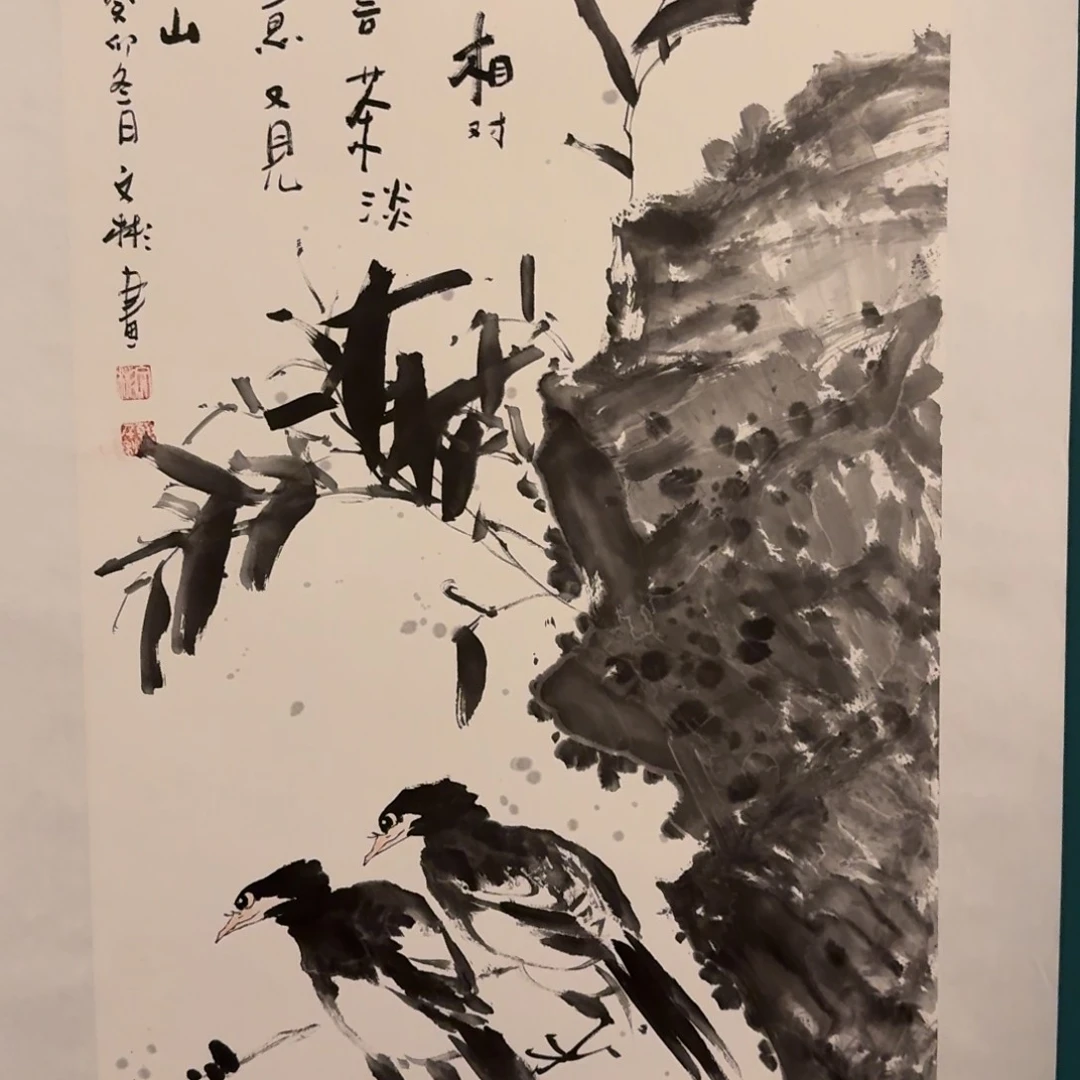 相对
言茶淡
意又见
山
癸卯冬日文彬画